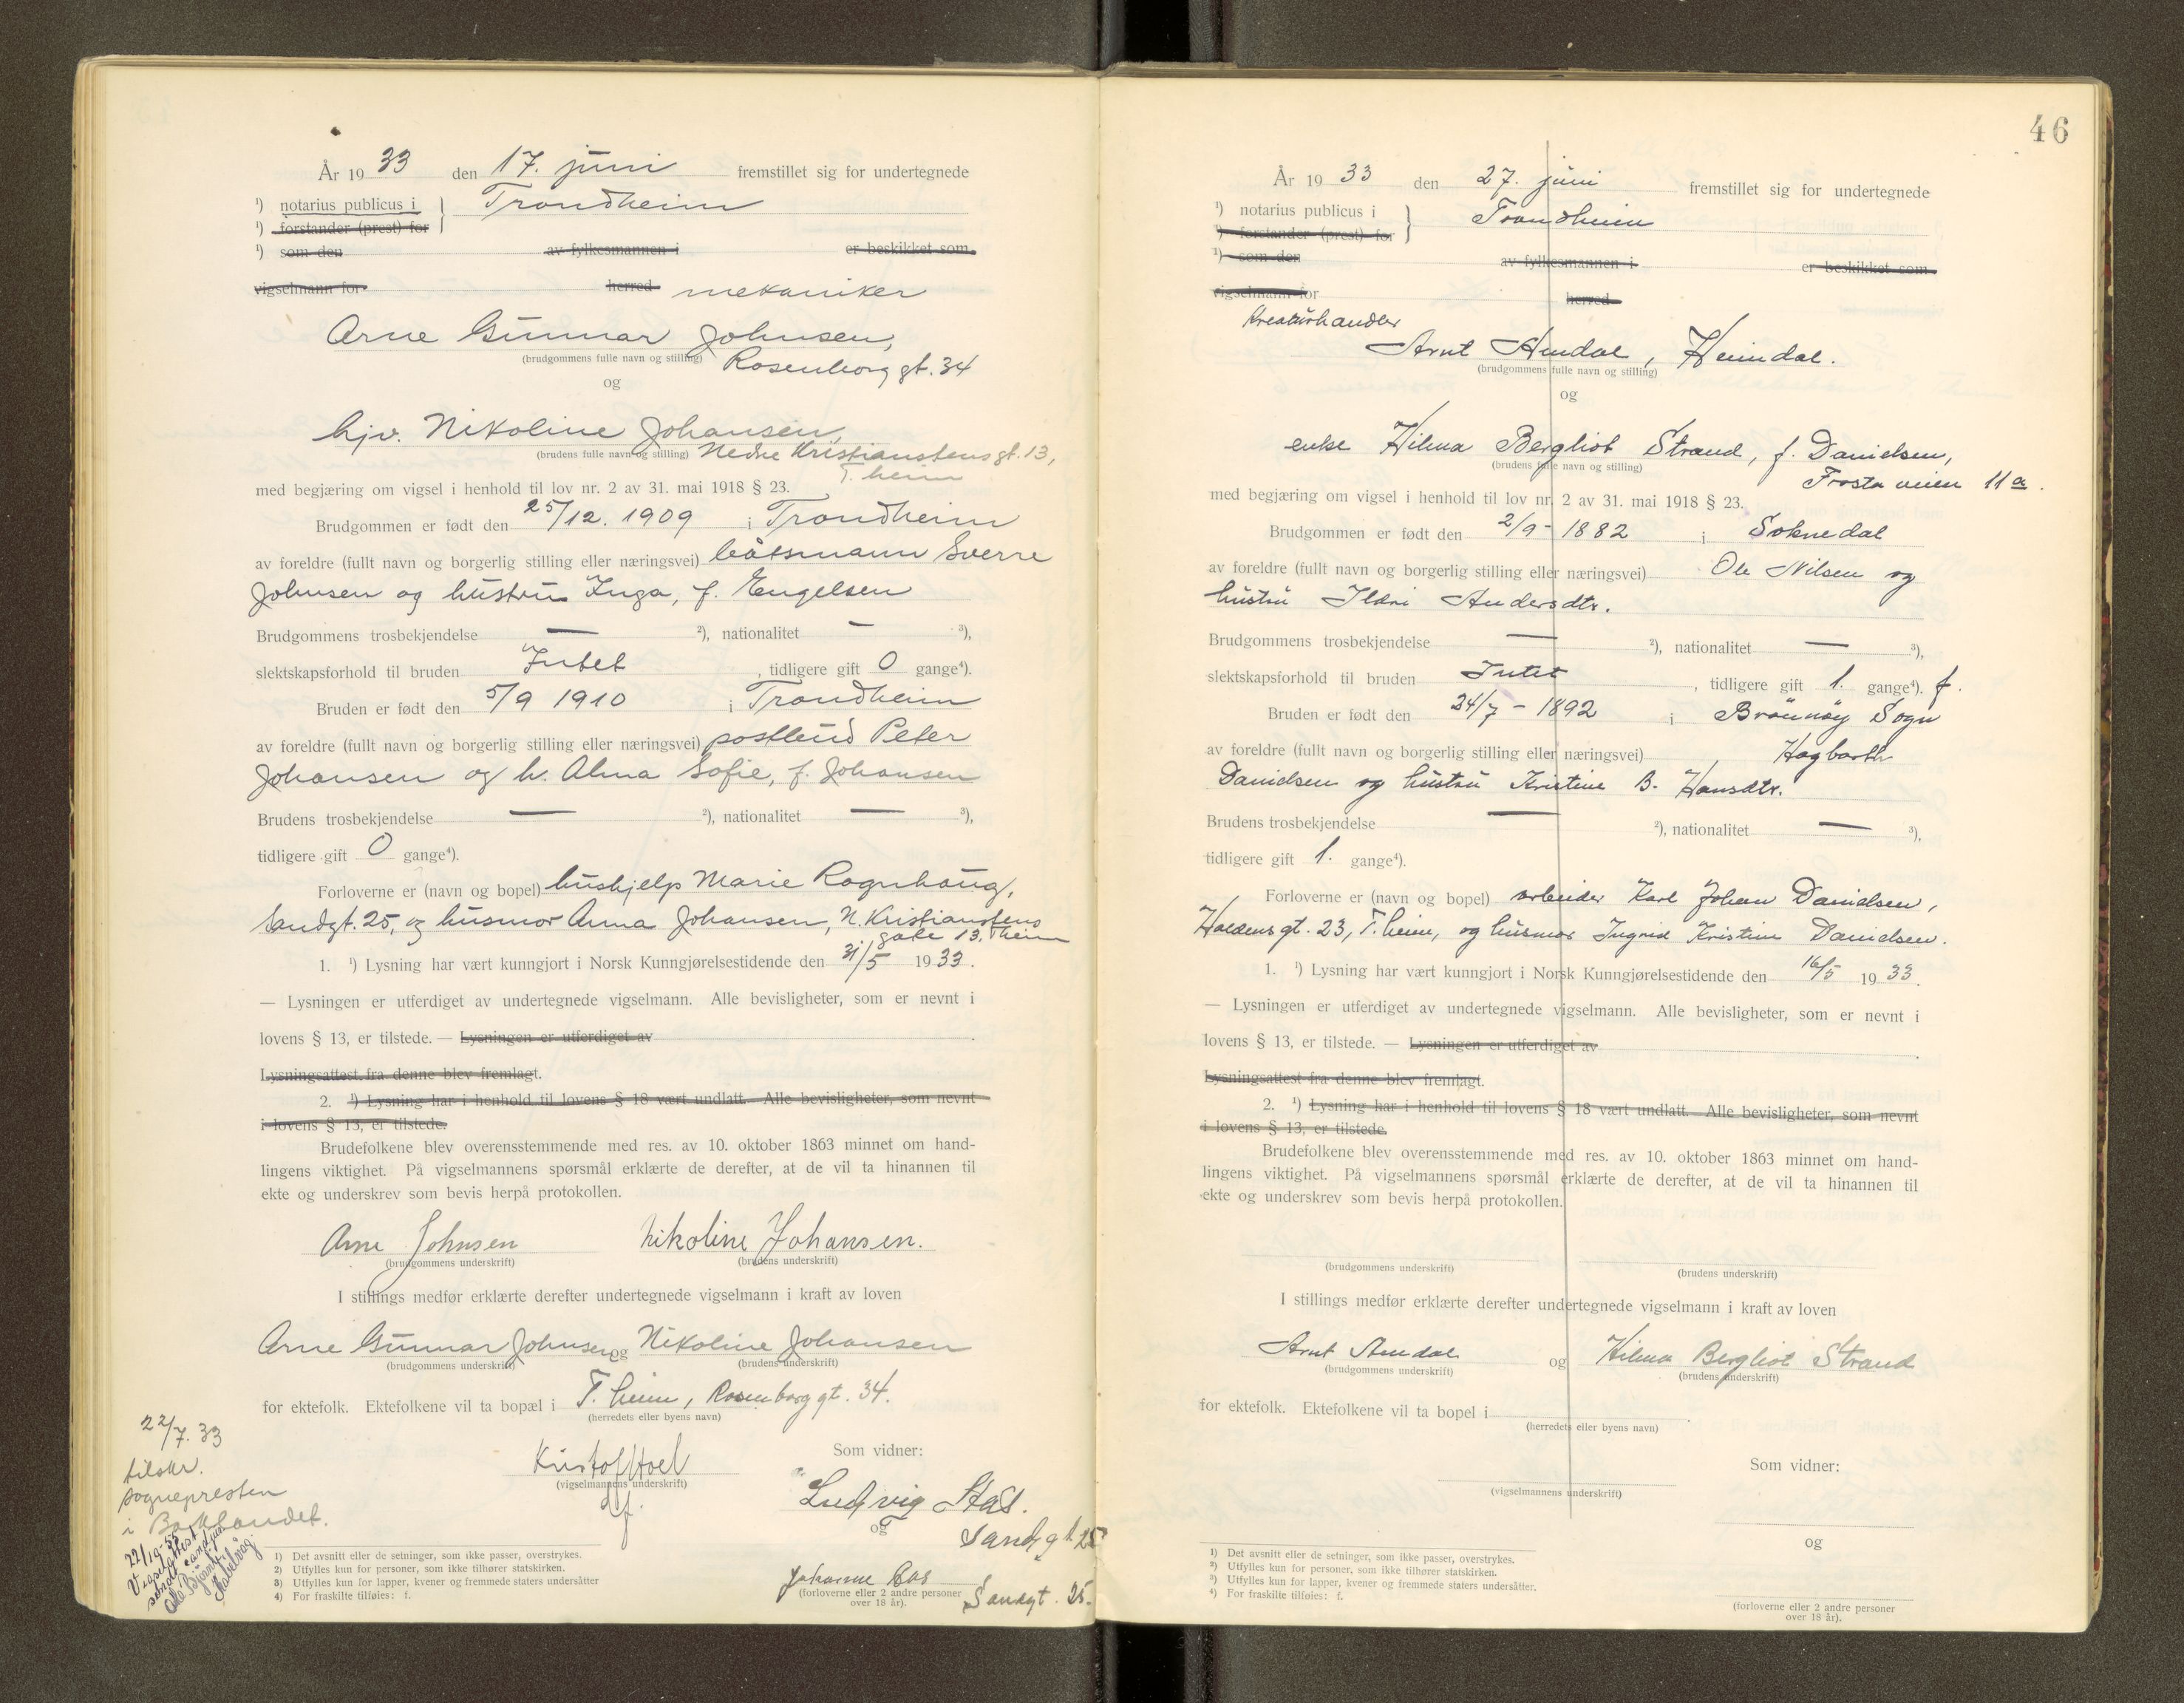 År 1933 den 17. juni fremstillet sig for undertegnede
¹) notarius publicus i } Trondheim
¹) forstander (prest) for
¹) som den av fylkesmannen i er beskikket som
vigselmann for herred mekaniker
Arne Gunnar Johnsen,
(brudgommens fulle navn og stilling) Rosenborg gt. 34
og
hjv. Nikoline Johansen,
(brudens fulle navn og stilling) Nedre Kristianstensgt. 13,
T.heim
med begjæring om vigsel i henhold til lov nr. 2 av 31. mai 1918 § 23.
Brudgommen er født den 25/12. 1909 i Trondheim
av foreldre (fullt navn og borgerlig stilling eller næringsvei) båtsmann Sverre
Johnsen og hustru Inga, f. Engelsen
Brudgommens trosbekjendelse — ²), nationalitet — ³),
slektskapsforhold til bruden Intet, tidligere gift 0 gange⁴).
Bruden er født den 5/9 1910 i Trondheim
av foreldre (fullt navn og borgerlig stilling eller næringsvei) postbud Peter
Johansen og h. Alma Sofie, f. Johansen
Brudens trosbekjendelse — ²), nationalitet — ³),
tidligere gift 0 gange⁴).
Forloverne er (navn og bopel) hushjelp Marie Rognhaug,
Sandgt. 25, og husmor Anna Johansen, N. Kristianstens
gate 13, T.heim
1. ¹) Lysning har vært kunngjort i Norsk Kunngjørelsestidende den 31/5 1933.
— Lysningen er utferdiget av undertegnede vigselmann. Alle bevisligheter, som er nevnt i
lovens § 13, er tilstede. — Lysningen er utferdiget av
Lysningsattest fra denne blev fremlagt.
2. ¹) Lysning har i henhold til lovens § 18 vært undlatt. Alle bevisligheter, som nevnt
i lovens § 13, er tilstede.
Brudefolkene blev overensstemmende med res. av 10. oktober 1863 minnet om hand-
lingens viktighet. På vigselmannens spørsmål erklærte de derefter, at de vil ta hinannen til
ekte og underskrev som bevis herpå protokollen.
Arne Johnsen Nikoline Johansen.
(brudgommens underskrift) (brudens underskrift)
I stillings medfør erklærte derefter undertegnede vigselmann i kraft av loven
Arne Gunnar Johnsen og Nikoline Johansen
(brudgommens underskrift) (brudens underskrift)
for ektefolk. Ektefolkene vil ta bopæl i T.heim, Rosenborg gt. 34.
(herredets eller byens navn)
22/7. 33
tilskr.
sognepresten
i Bakklandet.
Som vidner:
(vigselmannens underskrift)
Ludvig
og
Sandgt 25
Johanne
(forloverne eller 2 andre personer
over 18 år). Sandgt. 25.
22/10-
Vigselattest
1) Det avsnitt eller de setninger, som ikke passer, overstrykes.
2) Utfylles kun for personer, som ikke tilhører statskirken.
3) Utfylles kun for lapper, kvener og fremmede staters undersåtter
4) For fraskilte tilføies: f.
46
År 1933 den 27. juni fremstillet sig for undertegnede
¹) notarius publicus i } Trondheim
¹) forstander (prest) for
¹) som den av fylkesmannen i er beskikket som
vigselmann for herred
Kreaturhandler
Arnt Amdal, Heimdal.
(brudgommens fulle navn og stilling)
og
enke Hilma Bergliot Strand, f. Danielsen,
(brudens fulle navn og stilling)
Frostaveien 11a.
med begjæring om vigsel i henhold til lov nr. 2 av 31. mai 1918 § 23.
Brudgommen er født den 2/9 - 1882 i Soknedal
av foreldre (fullt navn og borgerlig stilling eller næringsvei) Ole Nilsen og
hustru Ildri Andersdtr.
Brudgommens trosbekjendelse — ²), nationalitet — ³),
slektskapsforhold til bruden Intet, tidligere gift 1. gange⁴). f.
Bruden er født den 24/7 - 1892 i Brönnöy Sogn
av foreldre (fullt navn og borgerlig stilling eller næringsvei) Hagbarth
Danielsen og hustru Kristine B. Hansdtr.
Brudens trosbekjendelse — ²), nationalitet — ³),
tidligere gift 1. gange⁴).
Forloverne er (navn og bopel) arbeider Karl Johan Danielsen,
Haldensgt. 23, T.heim, og husmor Ingrid Kristine Danielsen.
1. ¹) Lysning har vært kunngjort i Norsk Kunngjørelsestidende den 16/5 1933.
— Lysningen er utferdiget av undertegnede vigselmann. Alle bevisligheter, som er nevnt i
lovens § 13, er tilstede. — Lysningen er utferdiget av
Lysningsattest fra denne blev fremlagt.
2. ¹) Lysning har i henhold til lovens § 18 vært undlatt. Alle bevisligheter, som nevnt
i lovens § 13, er tilstede.
Brudefolkene blev overensstemmende med res. av 10. oktober 1863 minnet om hand-
lingens viktighet. På vigselmannens spørsmål erklærte de derefter, at de vil ta hinannen til
ekte og underskrev som bevis herpå protokollen.
(brudgommens underskrift) (brudens underskrift)
I stillings medfør erklærte derefter undertegnede vigselmann i kraft av loven
Arnt Amdal og Hilma Bergliot Strand
(brudgommens underskrift) (brudens underskrift)
for ektefolk. Ektefolkene vil ta bopel i
(herredets eller byens navn)
Som vidner:
(vigselmannens underskrift)
og
¹) Det avsnitt eller de setninger, som ikke passer, overstrykes.
²) Utfylles kun for personer, som ikke tilhører statskirken.
³) Utfylles kun for lapper, kvener og fremmede staters undersåtter.
⁴) For fraskilte tilføies: f.
(forloverne eller 2 andre personer
over 18 år).